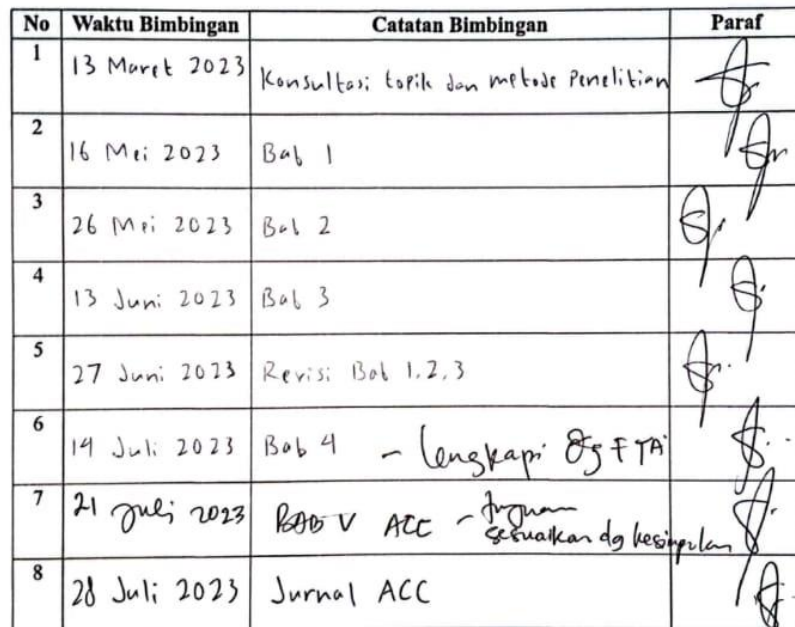 No Waktu Bimbingan Catatan Bimbingan Paraf
1 13 Maret 2023 Konsultasi topik dan metode Penelitian
2 16 Mei 2023 Bab 1
3 26 Mei 2023 Bab 2
4 13 Juni 2023 Bab 3
5 27 Juni 2023 Revisi Bab 1,2,3
6 14 Juli 2023 Bab 4 - lengkapi dg FTA
7 21 Juli 2023 BAB V ACC - tujuan
sesuaikan dg kesimpulan
8 28 Juli 2023 Jurnal ACC